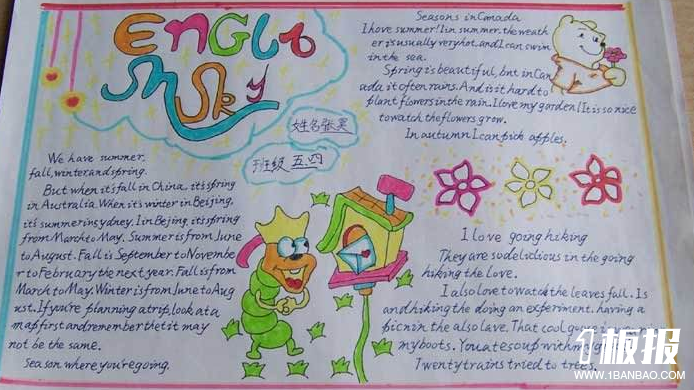 English Sky
姓名张昊
班级五四
We have summer,
fall, winter and spring.
But when it's fall in China, it's spring
in Australia. When it's winter in Beijing,
it's summer in sydney. In Bejing, it's spring
from March to May. Summer is from June
to August. Fall is September to Novembe
r to february the next year. Fall is from
March to May. Winter is from June to Aug
ust. If you're planning a trip, look at a
map first and remember thet it may
not be the same.
Season where you're going.
Seasons in Canada
I hove summer! I in summer, the weath
er is usually very hot, and I can swim
in the sea.
Spring is beautiful, but in Can
ada it often rains. And is it hard to
plant flowers in the rain. I love my garden! It is so nice
to watch the flowers grow.
In autumn I can pick apples.
I love going hiking
They are so delidious in the going
hiking the love.
I also love to watch the leaves fall. Is
and hiking the doing an experiment, having a
picnin the also lave. That cool
my boots. You ate soup with my
Twenty trains tried to trees.
1板报
WWW.1BANBAO.COM